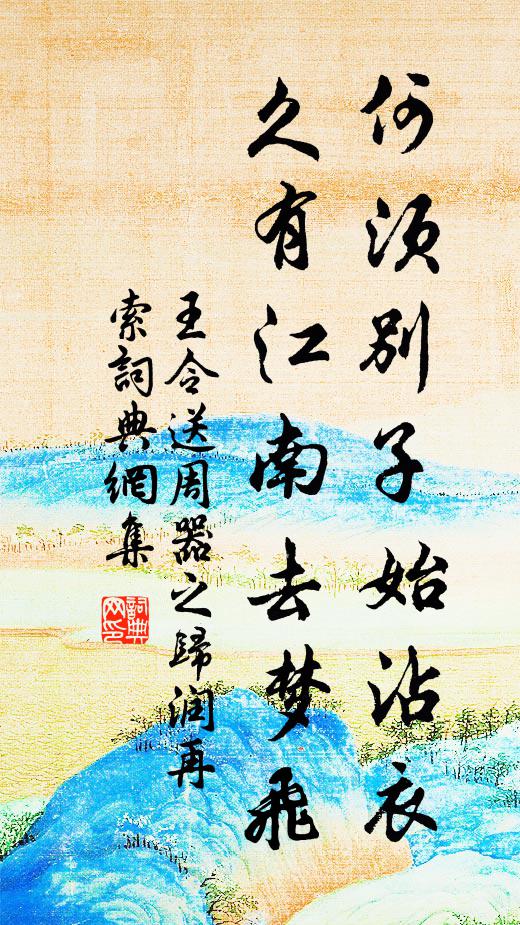 何须别子始沾衣
久有江南去梦飛
王令送周器之歸润再
索詞典網集
詞典网印